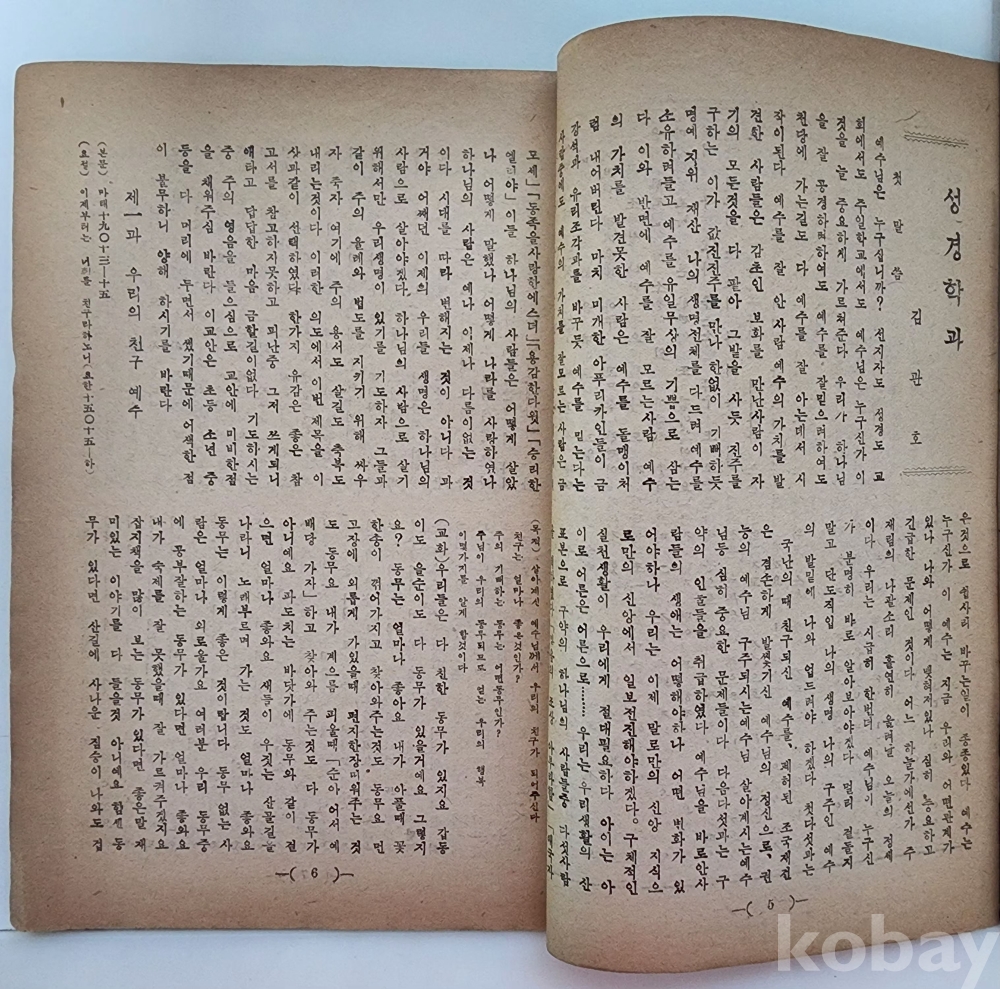 성경학과
김관호
첫말씀
예수님은 누구십니까? 선지자도 성경도 교
회에서도 주일학교에서도 예수님은 누구신가 이
것을 늘 중요하게 가르쳐준다 우리가 하나님
을 잘 공경하려하여도 예수를 잘믿으려하여도
천당에 가는길도 다 예수를 잘 아는데서 시
작이된다 예수를 잘 안사람 예수의 가치를 발
견한 사람들은 감초인 보화를 만난사람이 자
기의 모든것을 다 팔아 그밭을 사듯 진주를
구하는 이가 값진진주를 만나 한없이 기뻐하듯
명예 지위 재산 나의 생명전체를 다드려 예수를
소유하려들고 예수를 유일무상의 기쁨으로 삼는
다 이와 반면에 예수를 잘 모르는사람 예수
의 가치를 발견못한 사람은 예수를 돌맹이처
럼 내어버린다 마치 미개한 아푸리카인들이 금
강석과 유리조각과를 바꾸듯 예수를 믿는다는
사람중에도 예수의 가치를 잘모르는사람은 금
은것으로 쉽사리 바꾸는일이 종종있다 예수는
누구신가 예수는 지금 우리와 어떤관계가
있나 나와 어떻게 맺혀져있나 심히 중요하고
긴급한 문제인 것이다 어느 하늘가에선가 주
재림의 나팔소리 홀연히 울려날 오늘의 정세
이다 우리는 시급히 한번더 예수님이 누구신
가 분명히 바로 알아보아야겠다 멀리 겉돌지
말고 단도직입 나의 생명 나의 구주인 예수
의 발밑에 나와 업드려야 하겠다 첫다섯과는
국난의 때 친구되신 예수를, 제허된 조국재건
은 겸손하게 발씻기신 예수님의 정신으로, 권
능의 예수님 구주되시는예수님 살아계시는예수
님등 심히 중요한 문제들이다 다음다섯과는 구
약의 인물들을 취급하였다 예수님을 바로안사
람들의 생애는 어떻해야하나 어떤 변화가 있
어야하나 우리는 이제 말로만의 신앙 지식으
로만의 신앙에서 일보전진해야하겠다. 구체적인
실천생활이 우리에게 절대필요하다 아이는 아
이로 어른은 어른으로……… 우리는 우리생활의 산
표본으로 구약의 하나님의 사람들중 다섯사람
—( 5 )—
모세」「동족을사랑한에스더」「용감한다윗」「승리한
엘리야」이들 하나님의 사람들은 어떻게 살았
나 어떻게 말했나 어떻게 나라를 사랑하였나
하나님의 사람은 예나 이제나 다름이없는 것
이다 시대를 따라 변해지는 것이 아니다 과
거야 어쨌던 이제의 우리들 생명은 하나님의
사람으로 살아야겠다. 하나님의 사람으로 살기
위해서만 우리생명이 있기를 기도하자 그들과
같이 주의 율례와 법도를 지키기 위해 싸우
자 죽자 여기에 주의 용서도 살길도 축복도
내리는것이다 이러한 의도에서 이번 제목을 이
상과같이 선택하였다 한가지 유감은 좋은 참
고서를 참고하지못하고 피난중 그저 쓰게되니
애타고 답답한 마음 금할길이없다 기도하시는
중 주의 영음을 들으심으로 교안에 미비한점
을 채워주심 바란다 이교안은 초등 소년 중
등을 다 머리에 두면서 썼기때문에 어색한점
이 불무하니 양해 하시기를 바란다
제一과 우리의 친구 예수
(본문). 마태十九○十三—十五
(요절) 이제부터는 너희를 친구라하노니 요한十五○十五—하)
(목적) 살아계신 예수님께서 우리의 친구가 되어주신다
친구는 얼마나 좋은것인가?
주의 기뻐하는 동무는 어떤동무인가?
주님이 우리의 동무되므로 얻는 우리의 행복
이몇가지를 알게 할것이다
(교화) 우리들은 다 친한 동무가 있지요 갑동
이도 을순이도 다 동무가 있을거예요 그렇지
요? 동무는 얼마나 좋아요 내가 아플때 꽃
한송이 꺾어가지고 찾아와주는것도 동무요 먼
고장에 외롭게 가있을때 편지한장띠워주는 것
도 동무요 내가 게으름 피울때「순아 어서 예
배당 가자」하고 찾아와 주는것도 다 동무가
아니예요 파도치는 바닷가에 동무와 같이 걸
으면 얼마나 좋와요 새들이 우짖는 산골길을
나란히 노래부르며 가는 것도 얼마나 좋와요
동무는 이렇게 좋은 것이랍니다 동무 없는 사
람은 얼마나 외로울가요 여러분 우리 동무중
에 공부잘하는 동무가 있다면 얼마나 좋와요
내가 숙제를 잘 못했을때 잘 가르켜주겠지요
잡지책을 많이 보는 동무가 있다면 좋은말 재
미있는 이야기를 다 들을것 아니예요 힘센 동
무가 있다면 산길에 사나운 짐승이 나와도 겁
—( 6 )—
kobay